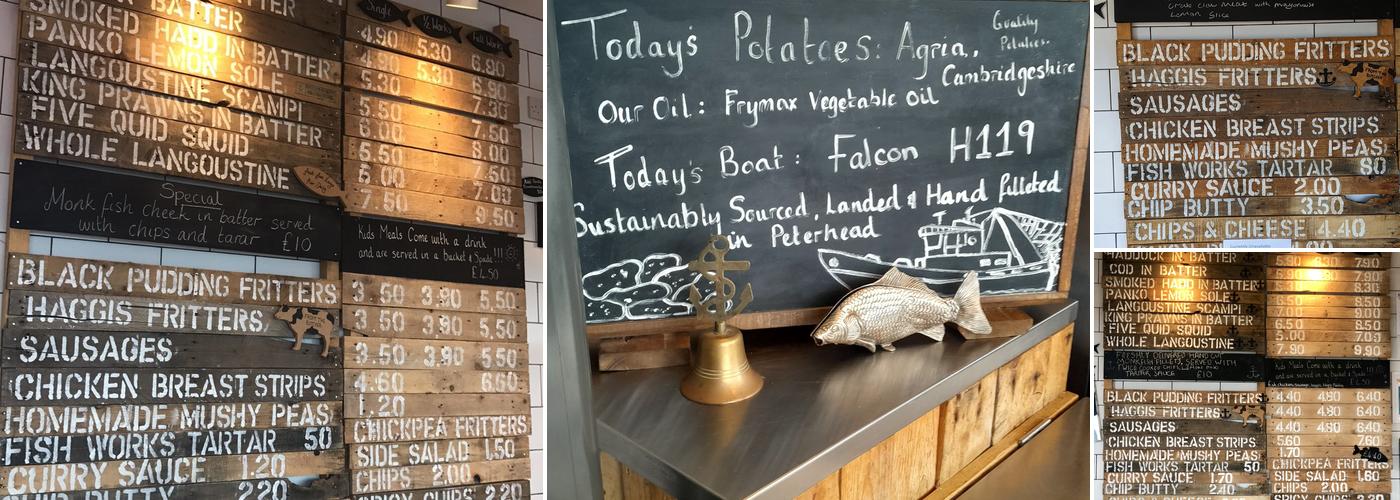 Single ½ Works Full Works
IN BATTER
SMOKED HADD IN BATTER 4.90 5.30
PANKO LEMON SOLE 4.90 5.30 6.90
LANGOUSTINE SCAMPI 5.30 6.90
KING PRAWNS IN BATTER 5.50 7.30
FIVE QUID SQUID 6.00 7.50
WHOLE LANGOUSTINE 5.50 8.00
5.00 7.50
7.50 9.50
Special
Monk fish cheek in batter served
with chips and tarar £10
Kids Meals Come with a drink
and are served in a bucket & Spade!!!
£4.50
BLACK PUDDING FRITTERS 3.50 3.90 5.50
HAGGIS FRITTERS 3.50 3.90 5.50
SAUSAGES 3.50 3.90 5.50
CHICKEN BREAST STRIPS 4.60 6.60
HOMEMADE MUSHY PEAS 1.20
FISH WORKS TARTAR 50 CHICKPEA FRITTERS
CURRY SAUCE 1.20 SIDE SALAD 1.50
CHIP BUTTY 2.20 CHIPS 2.00
Today's Potatoes: Agria,
Quality
Potatoes.
Cambridgeshire
Our Oil: Frymax Vegetable Oil
Today's Boat: Falcon H119
Sustainably Sourced, Landed & Hand filleted
in Peterhead
Crab claw meat with mayonnaise
Lemon Slice
BLACK PUDDING FRITTERS
HAGGIS FRITTERS
SAUSAGES
CHICKEN BREAST STRIPS
HOMEMADE MUSHY PEAS
FISH WORKS TARTAR 80
CURRY SAUCE 2.00
CHIP BUTTY 3.50
CHIPS & CHEESE 4.40
HADDOCK IN BATTER 5.90 6.30 7.90
COD IN BATTER 8.30
SMOKED HADD IN BATTER
PANKO LEMON SOLE 8.50
LANGOUSTINE SCAMPI 6.50 9.00
KING PRAWNS IN BATTER 7.00
FIVE QUID SQUID 6.50 8.50
WHOLE LANGOUSTINE 7.00 8.50
7.90 9.90
FRESHLY DELIVERED HAND CUT
MONKFISH FILLETS, SERVED WITH
TWICE COOKED CHIPS
TARTAR SAUCE £10
Kids Meals Come with a drink
and are served in a bucket & Spade
£4.50
BLACK PUDDING FRITTERS 4.40 4.80 6.40
HAGGIS FRITTERS 4.40 4.80 6.40
SAUSAGES 4.40 4.90 6.40
CHICKEN BREAST STRIPS 5.60 7.60
HOMEMADE MUSHY PEAS 1.70
FISH WORKS TARTAR 50 CHICKPEA FRITTERS
CURRY SAUCE 1.70 SIDE SALAD 1.60
CHIP BUTTY 2.40 CHIPS 2.00